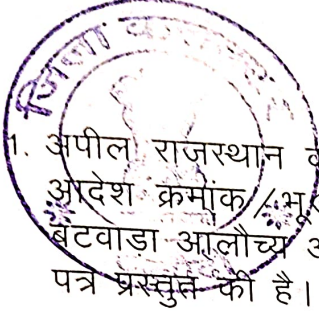 जिला
1. अपील राजस्थान
आदेश क्रमांक /
बटवाडा आलौच्य
पत्र प्रस्तुत की है।